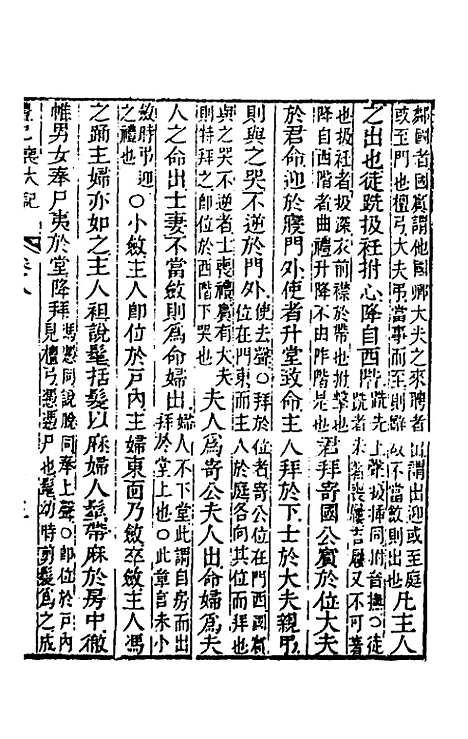 鄰國者國賓謂他國卿大夫之來聘者出謂出迎或至庭
或至門也檀弓大夫弔當事而至則辭故不當斂則出也凡主人
之出也徒跣扱衽拊心降自西階跣先上聲扱插同拊音撫〇徒
也扱衽者扱深衣前襟於帶也拊擊也
降自西階者曲禮升降不由阼階是也君拜寄國公賓於位大夫
於君命迎於寢門外使者升堂致命主人拜於下士於大夫親弔
則與之哭不逆於門外使去聲〇拜於位者寄公位在門西國賓
位在門東而主人於庭各向其位而拜也
與之哭不逆者士喪禮賓有大夫
則特拜之卽位於西階下哭也夫人爲寄公夫人出命婦爲夫
人之命出士妻不當斂則爲命婦出婦人不下堂此謂自房而出
拜於堂上也〇此章言未小
斂時弔迎
之禮也〇小斂主人卽位於戶內主婦東面乃斂卒斂主人馮
之踊主婦亦如之主人袒說髦括髮以麻婦人髽帶麻於房中徹
帷男女奉尸夷於堂降拜馮憑同說脫同奉上聲〇卽位於戶內
見檀弓憑憑尸也髦幼時剪髮爲之成
禮記喪大記 卷八